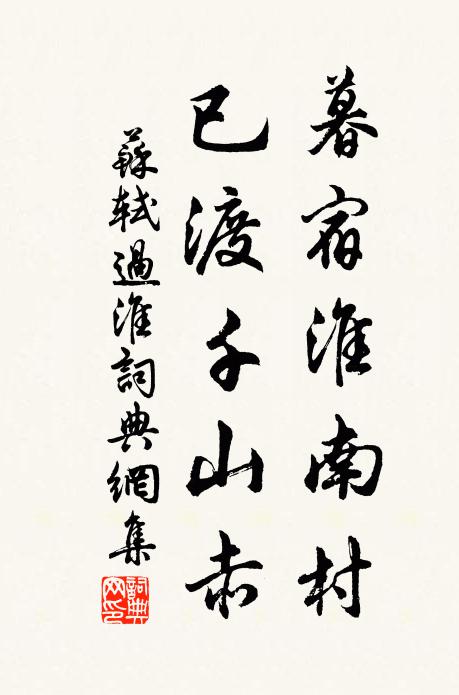 暮宿淮南村
已渡千山赤
蘇軾過淮詞典網集
詞典网印